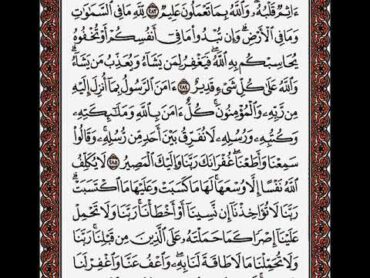 ءَاثِمٌ قَلْبُهُۥ وَٱللَّهُ بِمَا تَعْمَلُونَ عَلِيمٌ ٢٨٣ لِّلَّهِ مَا فِى ٱلسَّمَٰوَٰتِ
وَمَا فِى ٱلْأَرْضِ وَإِن تُبْدُوا۟ مَا فِىٓ أَنفُسِكُمْ أَوْ تُخْفُوهُ
يُحَاسِبْكُم بِهِ ٱللَّهُ فَيَغْفِرُ لِمَن يَشَآءُ وَيُعَذِّبُ مَن يَشَآءُ
وَٱللَّهُ عَلَىٰ كُلِّ شَىْءٍ قَدِيرٌ ٢٨٤ ءَامَنَ ٱلرَّسُولُ بِمَآ أُنزِلَ إِلَيْهِ
مِن رَّبِّهِۦ وَٱلْمُؤْمِنُونَ كُلٌّ ءَامَنَ بِٱللَّهِ وَمَلَٰٓئِكَتِهِۦ
وَكُتُبِهِۦ وَرُسُلِهِۦ لَا نُفَرِّقُ بَيْنَ أَحَدٍ مِّن رُّسُلِهِۦ وَقَالُوا۟
سَمِعْنَا وَأَطَعْنَا غُفْرَانَكَ رَبَّنَا وَإِلَيْكَ ٱلْمَصِيرُ ٢٨٥ لَا يُكَلِّفُ
ٱللَّهُ نَفْسًا إِلَّا وُسْعَهَا لَهَا مَا كَسَبَتْ وَعَلَيْهَا مَا ٱكْتَسَبَتْ
رَبَّنَا لَا تُؤَاخِذْنَآ إِن نَّسِينَآ أَوْ أَخْطَأْنَا رَبَّنَا وَلَا تَحْمِلْ
عَلَيْنَآ إِصْرًا كَمَا حَمَلْتَهُۥ عَلَى ٱلَّذِينَ مِن قَبْلِنَا رَبَّنَا
وَلَا تُحَمِّلْنَا مَا لَا طَاقَةَ لَنَا بِهِۦ وَٱعْفُ عَنَّا وَٱغْفِرْ لَنَا